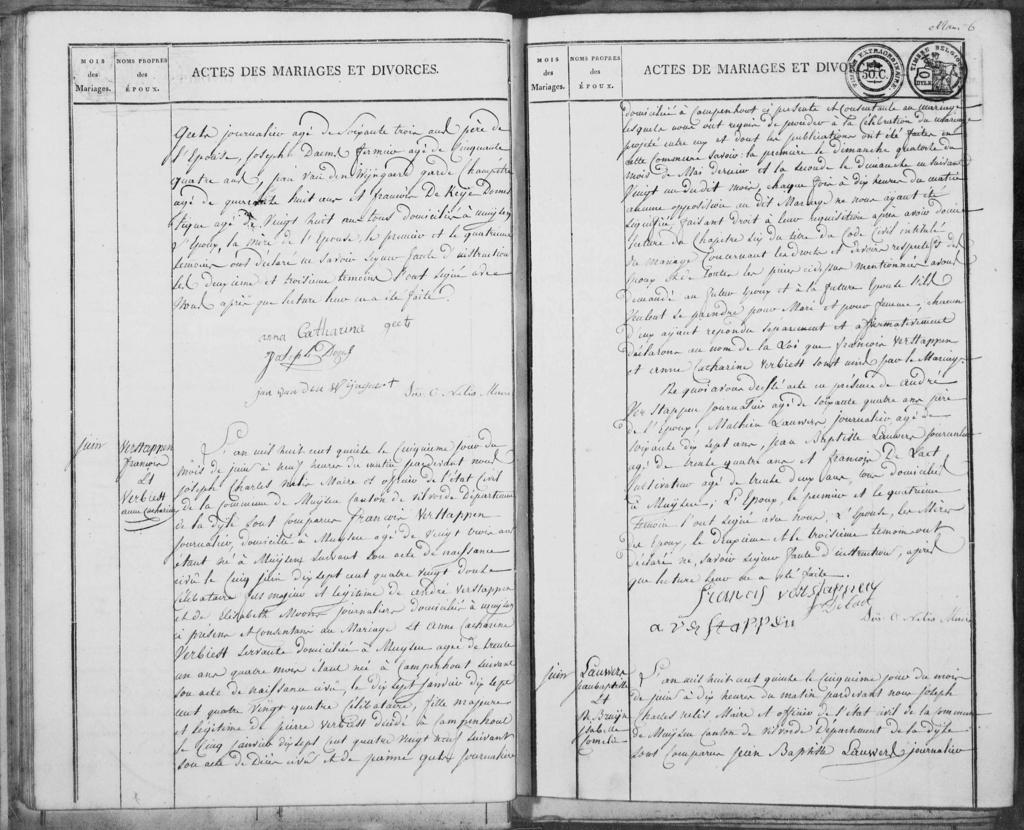 MOIS
des
Mariages.
NOMS PROPRES
des
ÉPOUX.
ACTES DES MARIAGES ET DIVORCES.
Geets journalier agé de Soixante trois ans père de
l'Epouse, Joseph Daems fermier agé de Cinquante
quatre ans, jean Van den Wijngard garde champêtre
agé de quarante huit ans et francois De Keije Domes
tique agé de Vingt huit ans tous domiciliés à Muijsen
l'Epoux, la mère de l'Epouse, le premier et le quatrieme
temoins ont declaré ne Savoir Signer faute d'instruction
les deuxieme et troisieme temoins l'ont Signé avec
Nous après que lecture leur en a été faite.
anna Catharina geets
Joseph Daems
jan van den Wijngaert
Jos. C. Nelis Maire
juin
Verstappen
francois
et
Verbiest
anne Catharine
L'an mil huit cent quinze le Cinquieme jour du
mois de juin à neuf heures du matin pardevant nous
Joseph Charles nelis Maire et officier de l'état Civil
de la Commune de Muijsen Canton de vilvorde Département
de la dyle Sont Comparus francois Verstappen
journalier, domicilié à Muysen agé de Vingt trois ans
étant né à Muijsen Suivant Son acte de naissance
civil le Cinq juin dix Sept cent quatre vingt douze
Célibataire fils majeur et légitime de andré Verstappen
et de Elisabeth Moons journaliers domiciliés à Muysen
ci présens et Consentans au Mariage Et Anne Catharine
Verbiest Servante domiciliée à Muysen agée de trente
un ans quatre mois étant né à Campenhout Suivant
Son acte de naissance civil, le dix Sept Janvier dix Sept
cent quatre Vingt quatre Célibataire, fille majeure
et légitime de pierre Verbiest décédé à Campenhout
le Cinq Janvier dix Sept cent quatre vingt neuf Suivant
Son acte de Décès civil et de jeanne Geets journaliere
6
MOIS
des
Mariages.
NOMS PROPRES
des
ÉPOUX.
ACTES DE MARIAGES ET DIVOR
TIMBRE EXTRAORDINAIRE
50. C.
TIMBRE BELGIQUE
domiciliée à Campenhout ci presente et Consentante au mariage
lesquels nous ont requis de proceder à la Célébration du mariage
projeté entre eux et dont les publications ont été faites en
cette Commune Savoir la première le dimanche quatorze du
mois de Mai dernier et la Seconde le dimanche en Suivant
Vingt un du dit mois, chaque fois à dix heures du matin
aucune opposition au dit Mariage ne nous ayant été
Signifiée, faisant droit à leur requisition après avoir donné
lecture du Chapitre Six du titre du Code Civil intitulé
du mariage Concernant les droits et devoirs respectifs des
époux et de toutes les pieces cidessus mentionnées avons
Demandé au futur Epoux et à la future Epouse S'ils
Veulent Se prendre pour Mari et pour femme, chacun
d'eux ayant repondu Separement et affirmativement
Déclarons au nom de la Loi que francois Verstappen
et Anne Catharine Verbiest Sont unis par le Mariage.
De quoi avons dressé acte en présence de André
Verstappen journalier agé de Soixante quatre ans père
de l'Epoux, Mathieu Lauwers journalier agé de
Soixante dix Sept ans, Jean Baptiste Lauwers journalier
agé de trente quatre ans et francois De Laet
Cultivateur agé de trente deux ans, tous domiciliés
à Muijsen, L'Epoux, le premier et le quatrieme
temoin l'ont Signé avec nous, L'Epouse, les Meres
des Epoux, le deuxieme et le troisieme temoin ont
déclaré ne Savoir Signer faute d'instruction, après
que lecture leur en a été faite.
francis verstappen
De Laet
a verstappen
Jos. C. Nelis Maire
juin
Lauwers
jean baptiste
et
De Bruijn
Isabelle
Cornelie
L'an mil huit cent quinze le Cinquieme jour du mois
de juin à dix heures du matin pardevant nous Joseph
Charles nelis Maire et officier de l'état civil de la Commune
de Muijsen Canton de vilvorde Département de la dyle
Sont Comparus Jean Baptiste Lauwers journalier